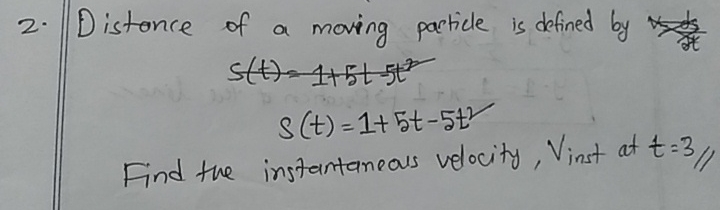 2. Distance of a moving particle is defined by
S(t) = 1+5t-5t²
S(t) = 1+5t-5t²
Find the instantaneous velocity, Vinst at t=3//